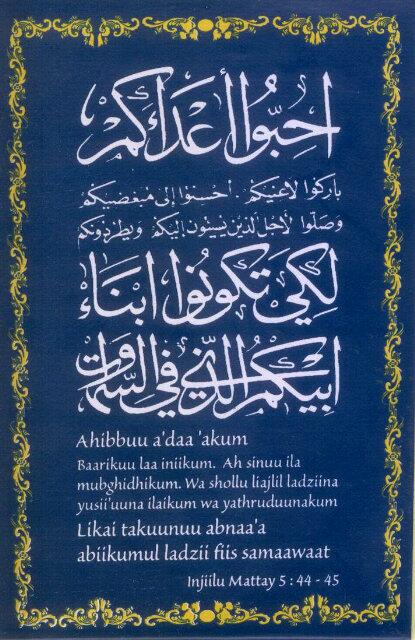 احبّوا أعداءكم
باركوا لاعنيكم . أحسنوا إلى مبغضيكم
وصلّوا لأجل الذين يسيئون إليكم ويطردونكم
لكي تكونوا ابناء
ابيكم الذي في السموات
Ahibbuu a'daa 'akum
Baarikuu laa iniikum. Ah sinuu ila
mubghidhikum. Wa shollu liajlil ladziina
yusii'uuna ilaikum wa yathruduunakum
Likai takuunuu abnaa'a
abiikumul ladzii fiis samaawaat
Injiilu Mattay 5 : 44 - 45